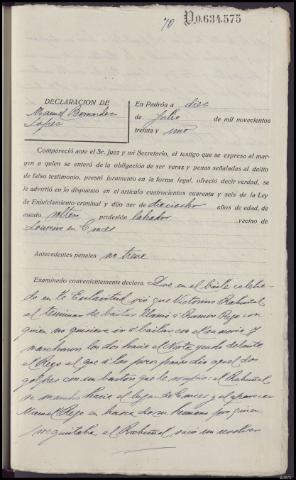 70 P.0.634.575
DECLARACION DE
Manuel Bermudez
Lopez
En Padrón a diez
de Julio de mil novecientos
treinta y uno
Compareció ante el Sr. Juez y mi Secretario, el testigo que se expresa al mar-
gen a quien se enteró de la obligación de ser veraz y penas señaladas al delito
de falso testimonio, prestó juramento en la forma legal, ofreció decir verdad, se
le advertió en lo dispuesto en el artículo cuatrocientos cuarenta y seis de la Ley
de Enjuiciamiento criminal y dijo ser de dieciocho años de edad, de
estado soltero profesión labrador , vecino de
Loureiro en Cruces
Antecedentes penales no tiene
Examinado convenientemente declara: Que en el baile celebra-
do en la vió que Victorino Rabuñal
al terminar de bailar llamó a Ramon Rey con
quien no quisiera ir a bailar con el
marcharon los dos hacia el yendo delante
el Rey al que a los pocos pasos dio aquel dos
golpes con un baston que le el Rabuñal
se marchó hacia el lugar de Cruces y al aparecer
Manuel Rey en busca de su hermano por quien
preguntaba el Rabuñal sacó un revolver